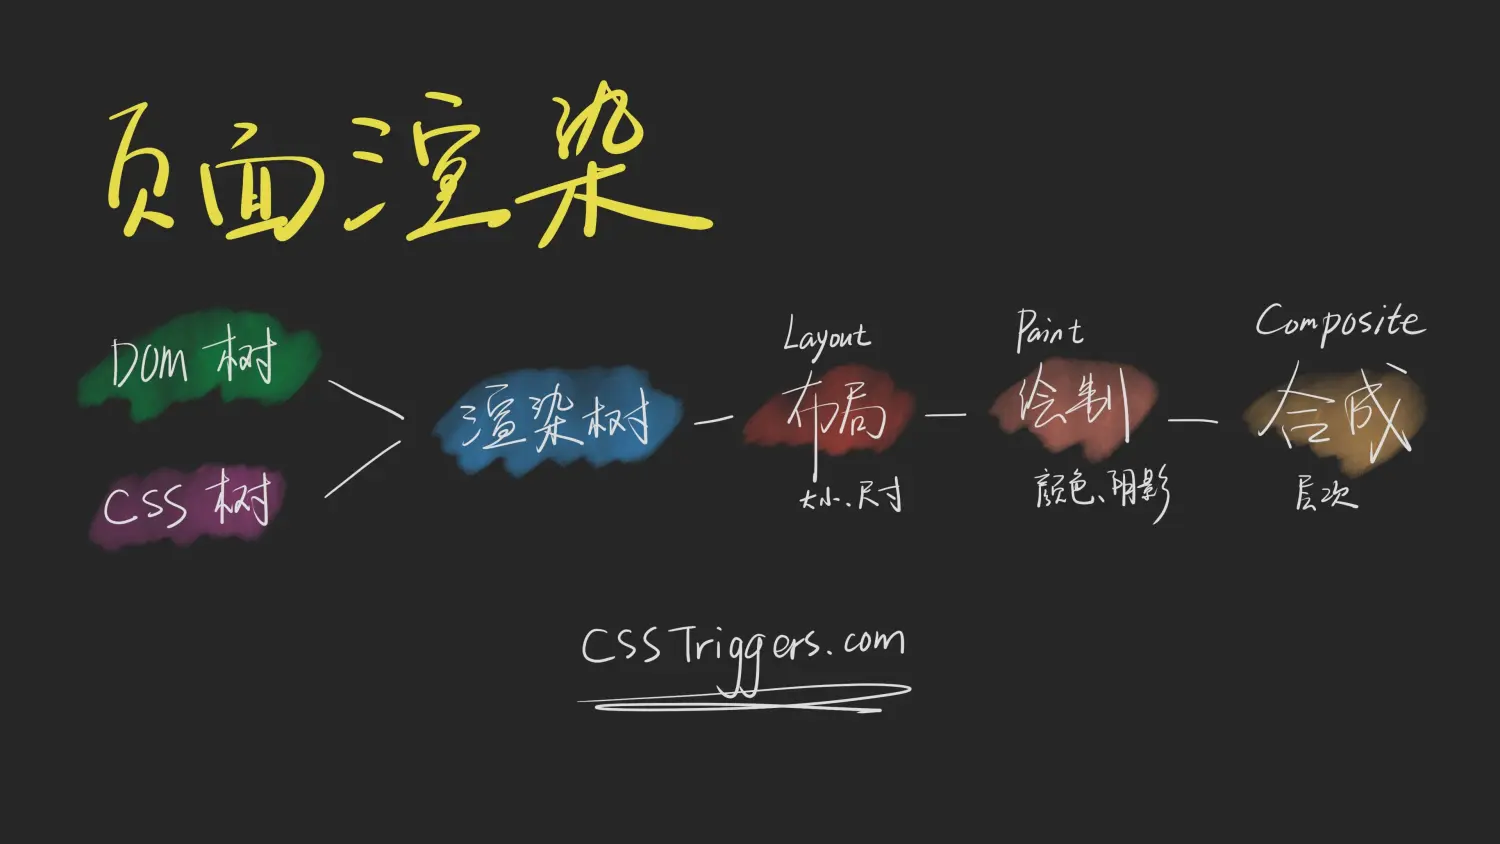 页面渲染
DOM 树
CSS 树
渲染树
Layout
布局
大小、尺寸
Paint
绘制
颜色、阴影
Composite
合成
层次
CSSTriggers.com